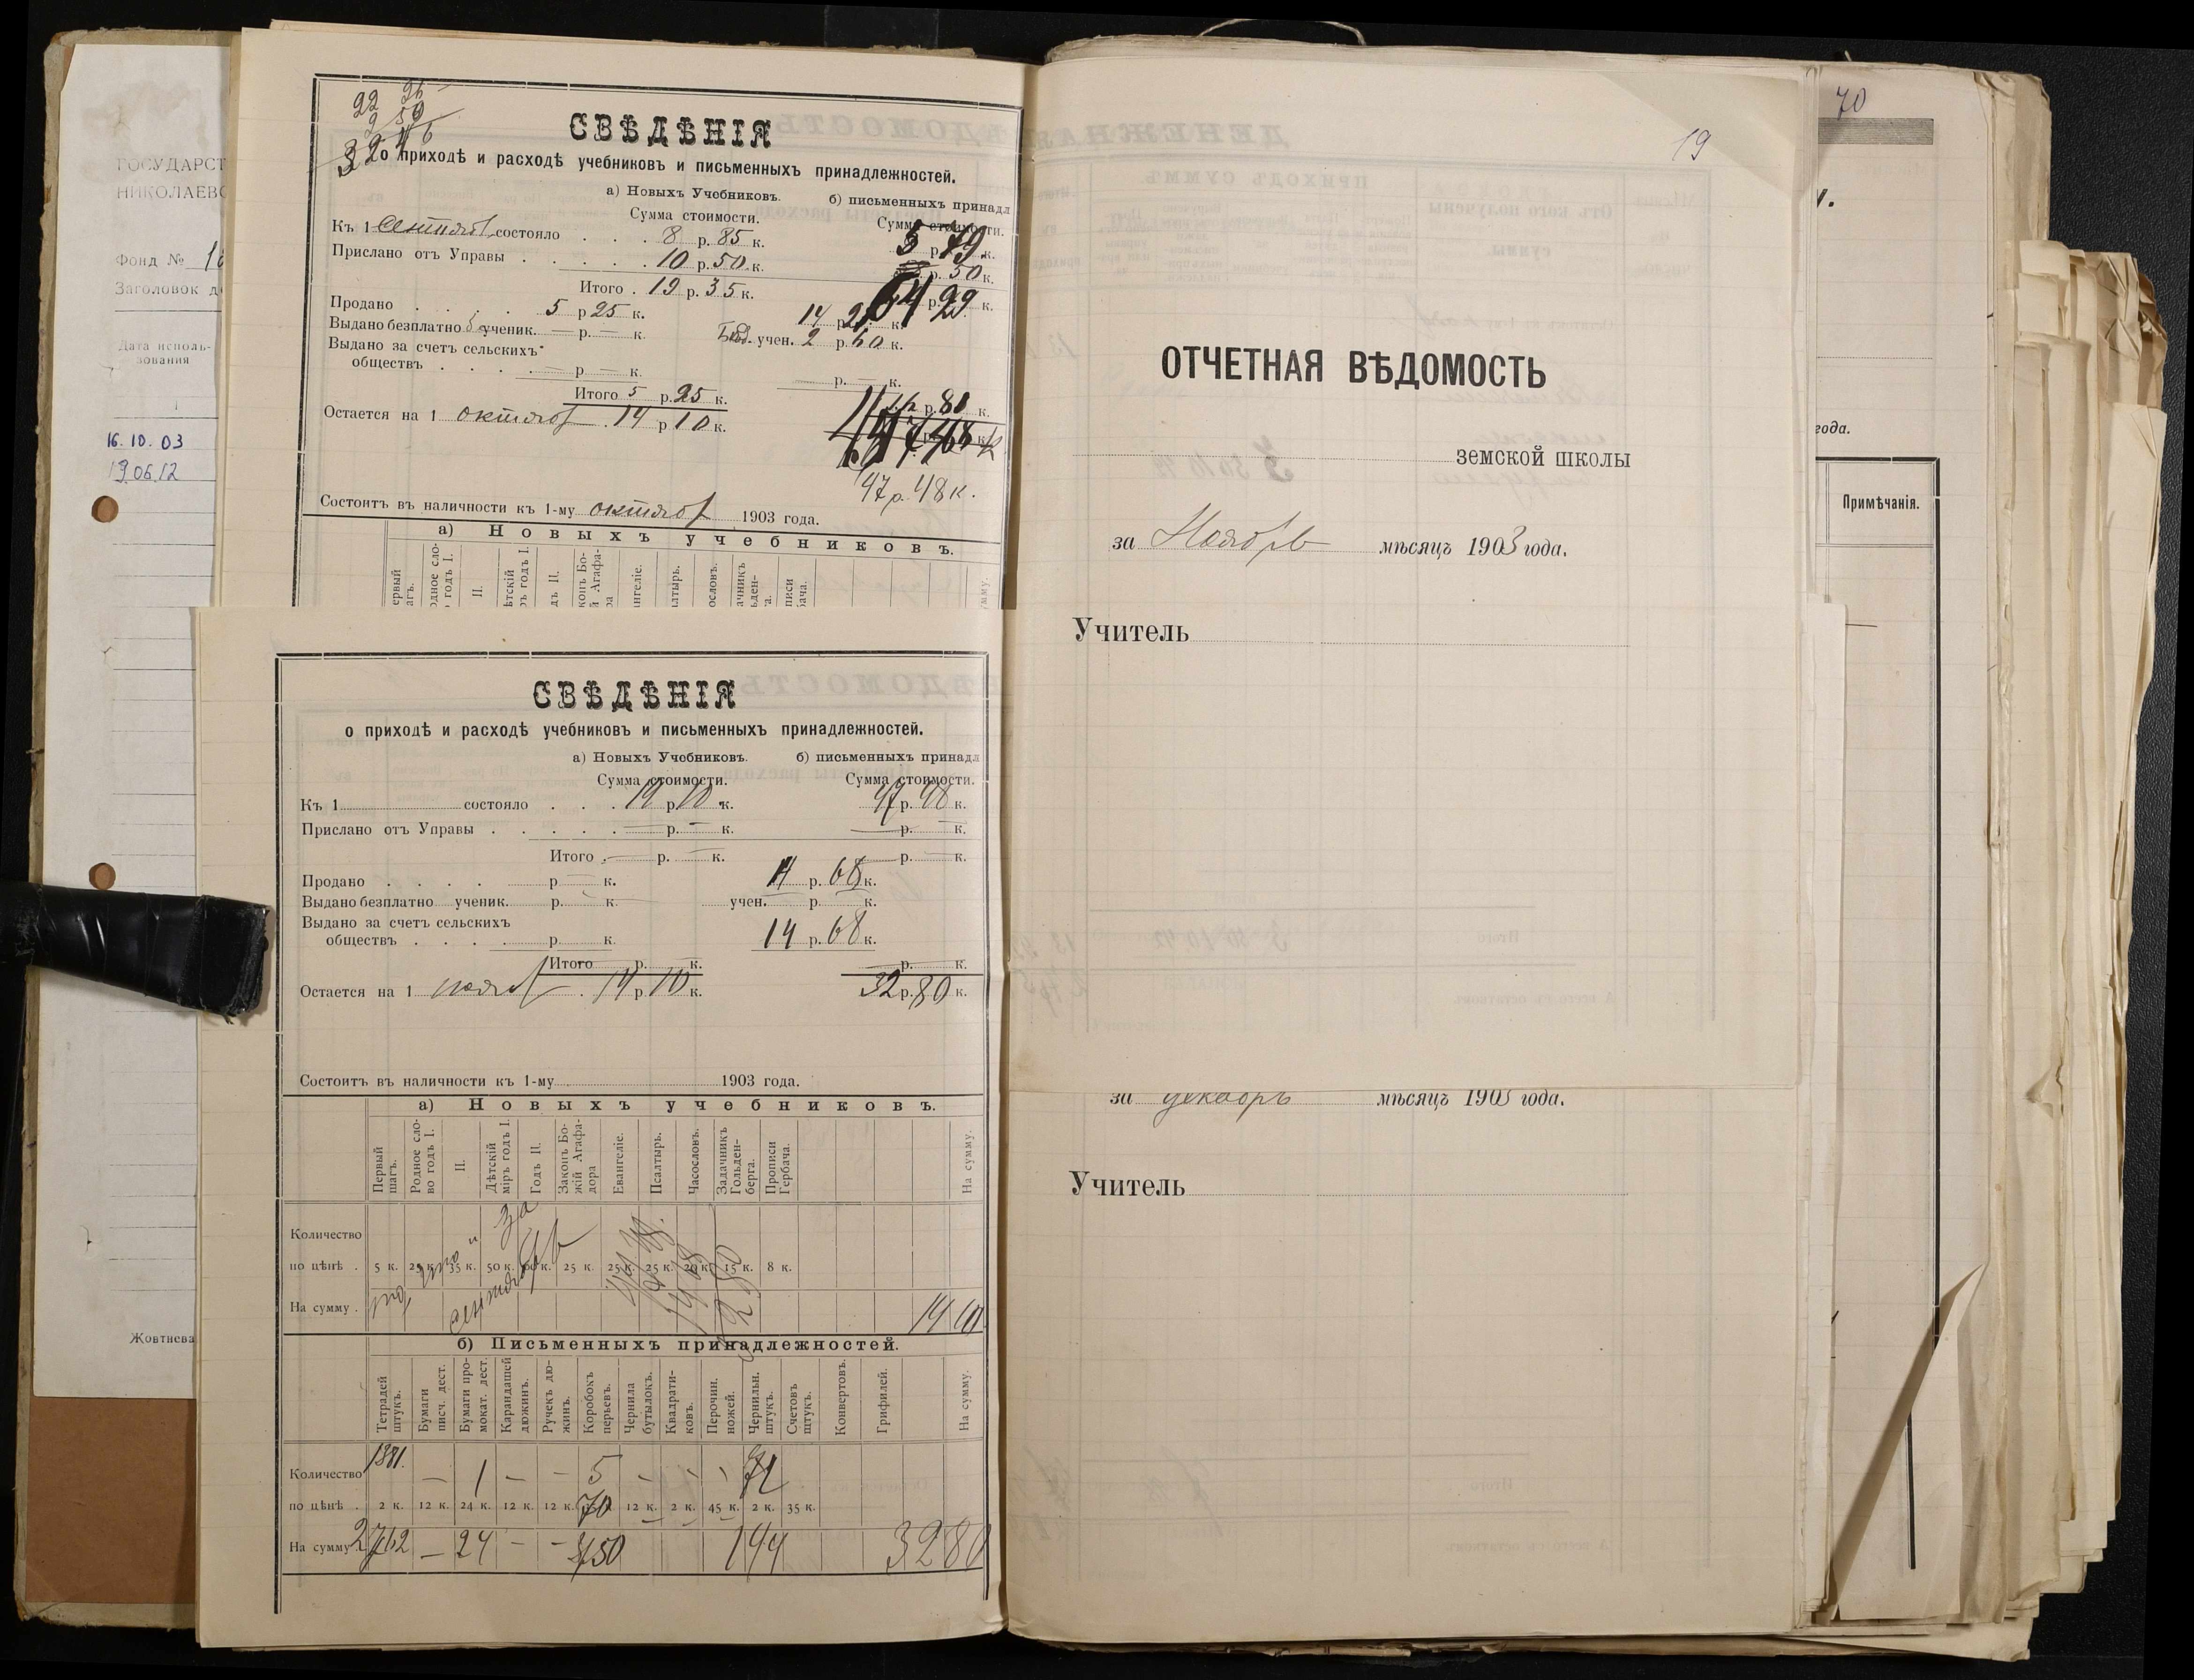 ГОСУДАРСТ
НИКОЛАЕВС
Фонд №
Заголовок д
Дата исполь-
зования
16.10.03
19.06.12
Жовтнева
СВѢДѢНІЯ
о приходѣ и расходѣ учебниковъ и письменныхъ принадлежностей.
а) Новыхъ Учебниковъ. б) письменныхъ принадл
Сумма стоимости. Сумма стоимости.
Къ 1 сентября состояло . . . 8 р. 85 к.
Прислано отъ Управы . . . . . 10 р. 50 к. р. 50 к.
Итого . 19 р. 35 к. р. 29 к.
Продано . . . . 5 р 25 к. 14 р.
Выдано безплатно ученик. — р. — к. учен. 2 р. 60 к.
Выдано за счетъ сельскихъ
обществъ . . . . — р — к. р. — к.
Итого 5 р. 25 к. р. 80 к.
Остается на 1 октября . 14 р 10 к.
47 р. 48 к.
Состоитъ въ наличности къ 1-му октября 1903 года.
а) Новыхъ учебниковъ.
СВѢДѢНІЯ
о приходѣ и расходѣ учебниковъ и письменныхъ принадлежностей.
а) Новыхъ Учебниковъ. б) письменныхъ принадл
Сумма стоимости. Сумма стоимости.
Къ 1 состояло . . . 14 р. 10 к. 47 р. 48 к.
Прислано отъ Управы . . . . . — р. — к. — р. — к.
Итого . — р. — к. р. — к.
Продано . . . . р — к. 14 р. 68 к.
Выдано безплатно ученик. р. к. учен. р. к.
Выдано за счетъ сельскихъ
обществъ . . . . р. к. 14 р. 68 к.
Итого р. к. р. к.
Остается на 1 ноября . 14 р. 10 к. 32 р. 80 к.
Состоитъ въ наличности къ 1-му 1903 года.
а) Новыхъ учебниковъ.
Первый шагъ. Родное сло- во годъ I. II. Дѣтскій міръ годъ I. Годъ II. Законъ Бо- жій Агафа- дора Евангеліе. Псалтырь. Часословъ. Задачникъ Гольден- берга. Прописи Гербача. На сумму.
Количество
по цѣнѣ . 5 к. 25 к. 35 к. 50 к. 60 к. 25 к. 25 к. 25 к. 20 к. 15 к. 8 к.
На сумму . 14 10
что и за
сентябрь
б) Письменныхъ принадлежностей.
Тетрадей штукъ. Бумаги писч. дест. Бумаги про- мокат. дест. Карандашей дюжинъ. Ручекъ дю- жинъ. Коробокъ перьевъ. Чернила бутылокъ. Квадрати- ковъ. Перочин. ножей. Чернильн. штукъ. Счетовъ штукъ. Конвертовъ. Грифилей. На сумму.
Количество 1381. — 1 — — 5 — - 72
по цѣнѣ . 2 к. 12 к. 24 к. 12 к. 12 к. 70 12 к. 2 к. 45 к. 2 к. 35 к.
На сумму 27 62 — 24 - - 3 50 1 44 32 80
19
ОТЧЕТНАЯ ВѢДОМОСТЬ
земской школы
за Ноябрь мѣсяцъ 1903 года.
Учитель
за декабрь мѣсяцъ 1903 года.
Учитель
70
года.
Примѣчанія.